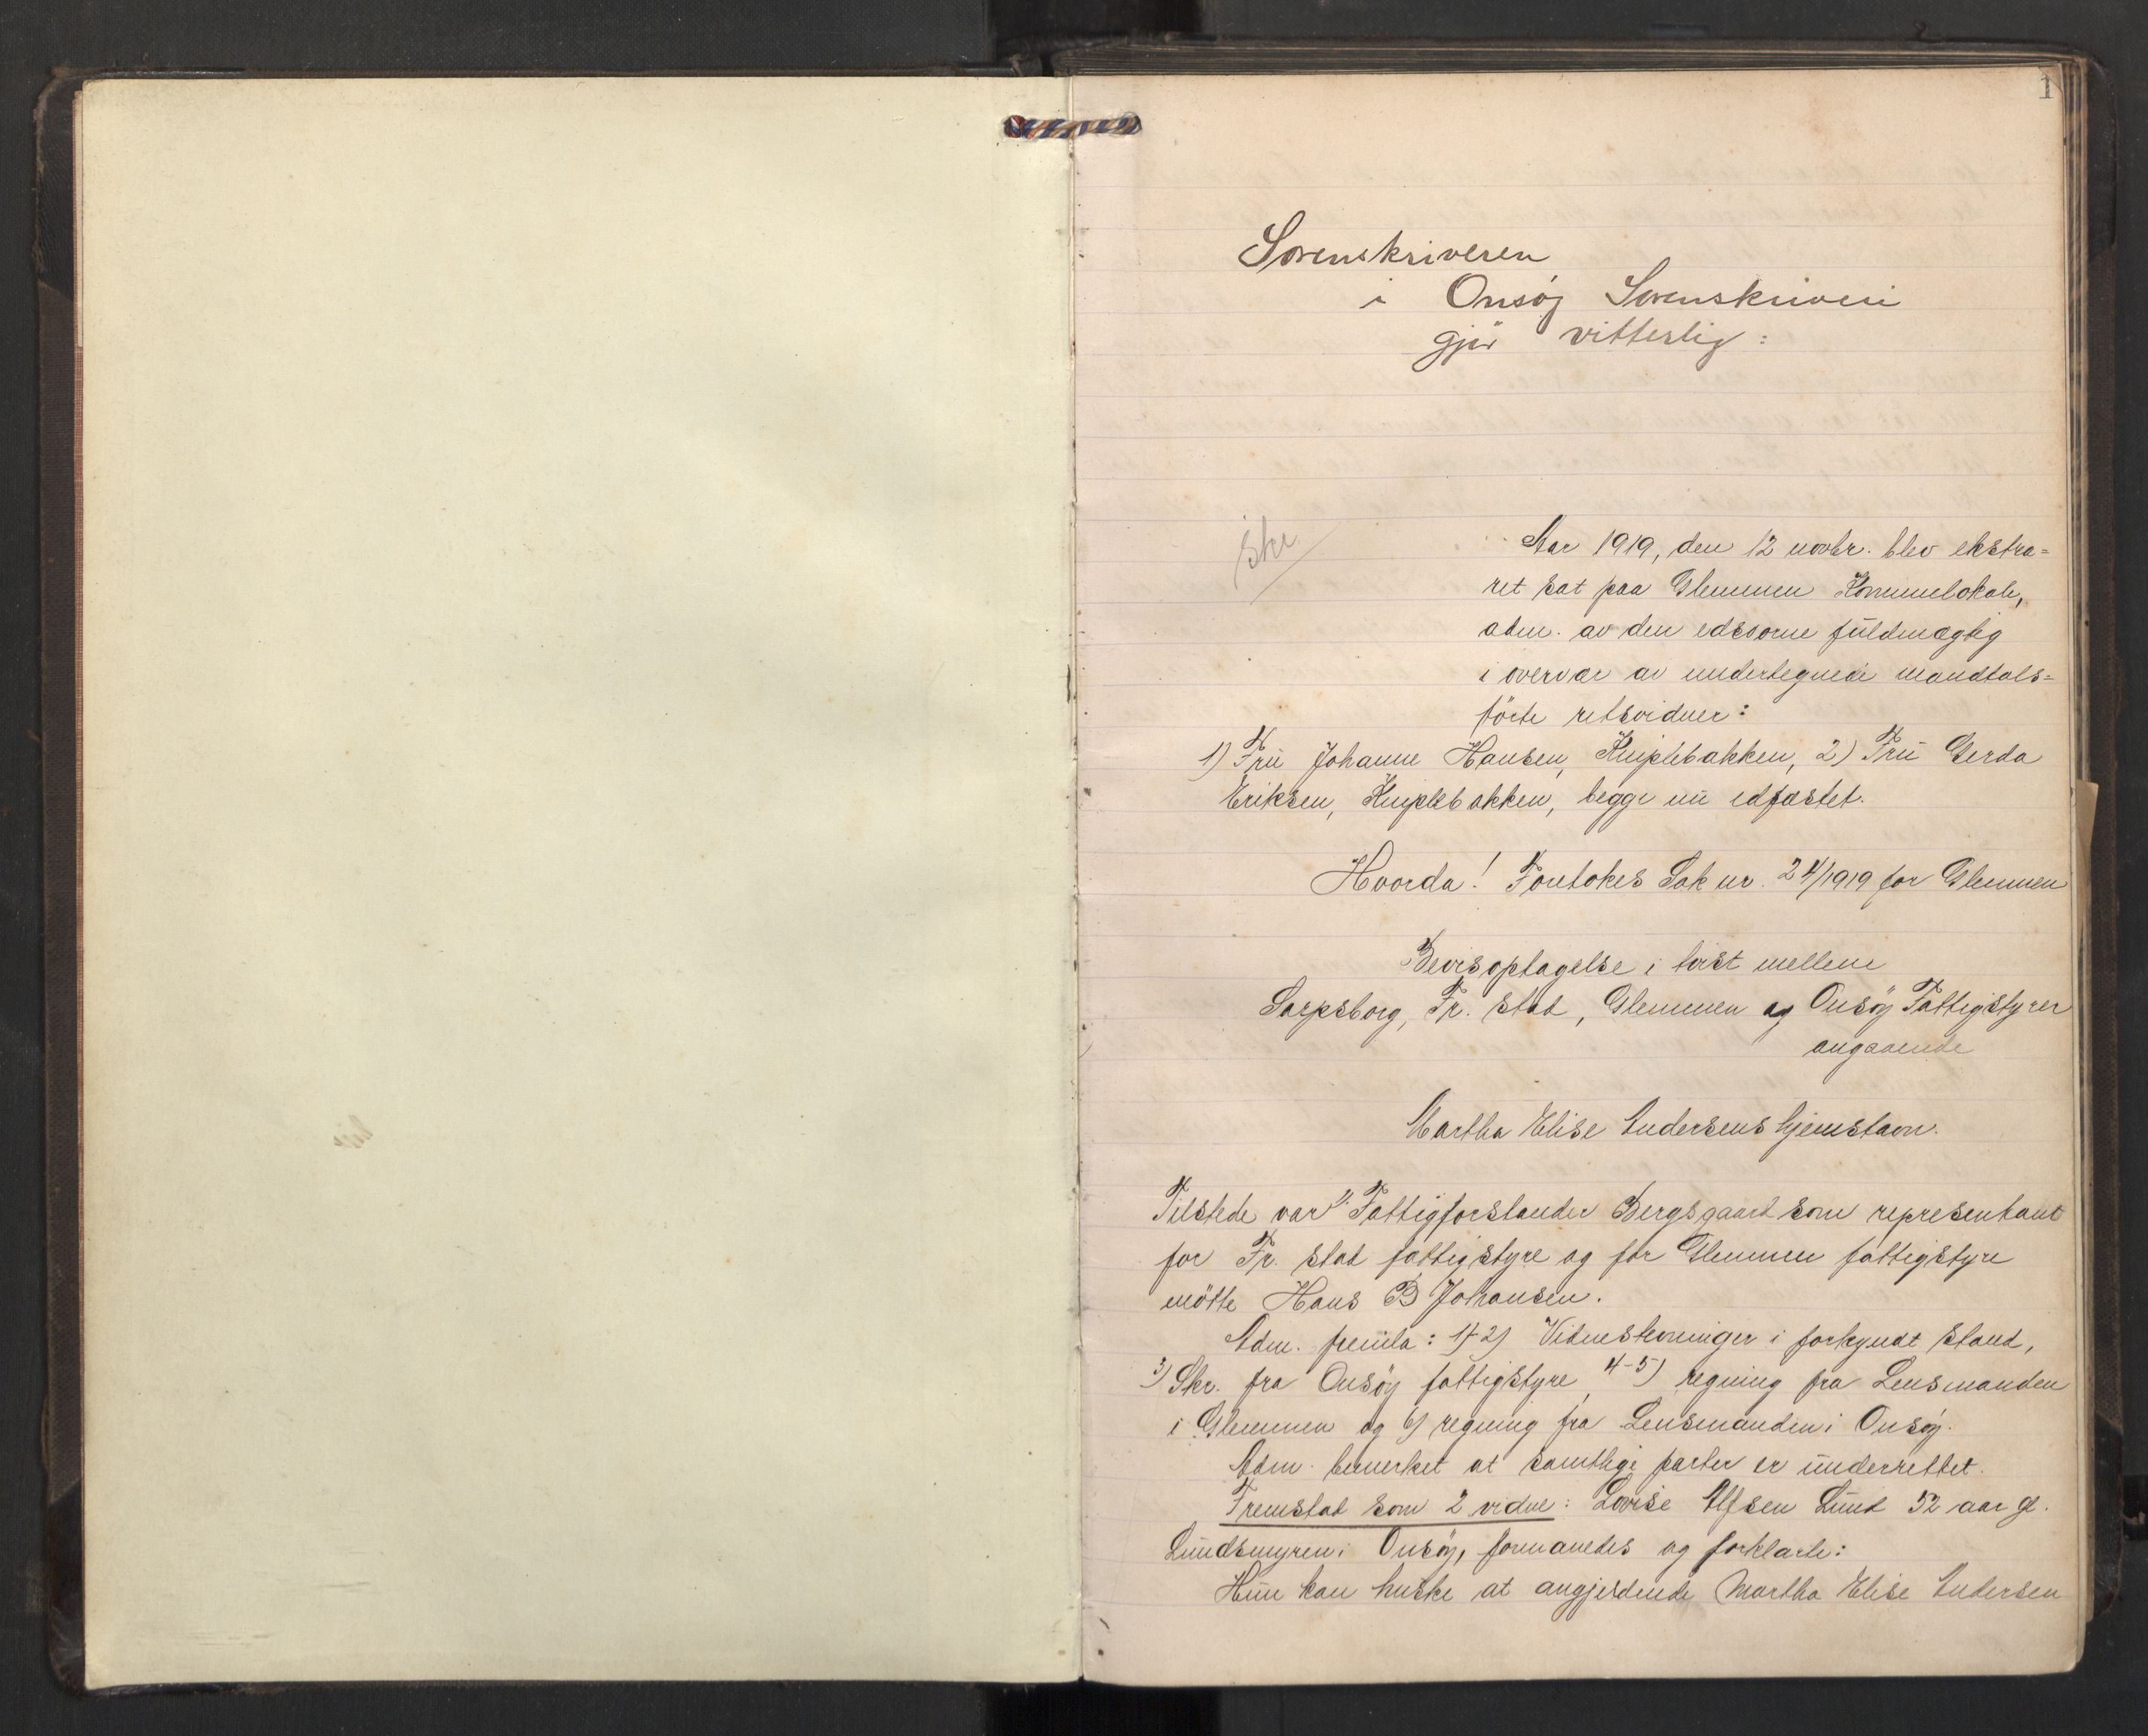 1
Sorenskriveren
i Onsøy Sorenskriveri
gjør vitterlig:
Aar 1919, den 12 novbr. blev ekstra=
ret sat paa Glemmen Kommunelokale,
adm. av den edsvorne fuldmægtig
i overvær av undertegnede mandtals=
førte retsvidner:
1) Fru Johanne Hansen, Kniplebakken, 2) Fru Gerda
Eriksen, Kniplebakken, begge nu edfæstet.
Hvorda! Foretokes Sak nr. 24/1919 for Glemmen
Bevisoptagelse i tvist mellem
Sarpsborg, Fr. stad, Glemmen og Onsöy Fattigstyrer
angaaende
Martha Elise Andersens hjemstavn.
Tilstede var Fattigforstander Bergsgaard som representant
for Fr. stad fattigstyre og for Glemmen fattigstyre
mötte Hans B Johansen.
Adm. fremla: 1)-2) Vidnestevninger i forkyndt stand,
3) Skr. fra Onsöy fattigstyre, 4-5) regning fra Lensmanden
i Glemmen og 6) regning fra Lensmanden i Onsøy.
Adm. bemerket at samtlige parter er underrettet.
Fremstod som 2 vidne: Lovise Alfsen Lund 52 aar gl.
Lundsmyren i Onsöy, formanedes og forklarte:
Hun kan huske at angjeldende Martha Elise Andersen